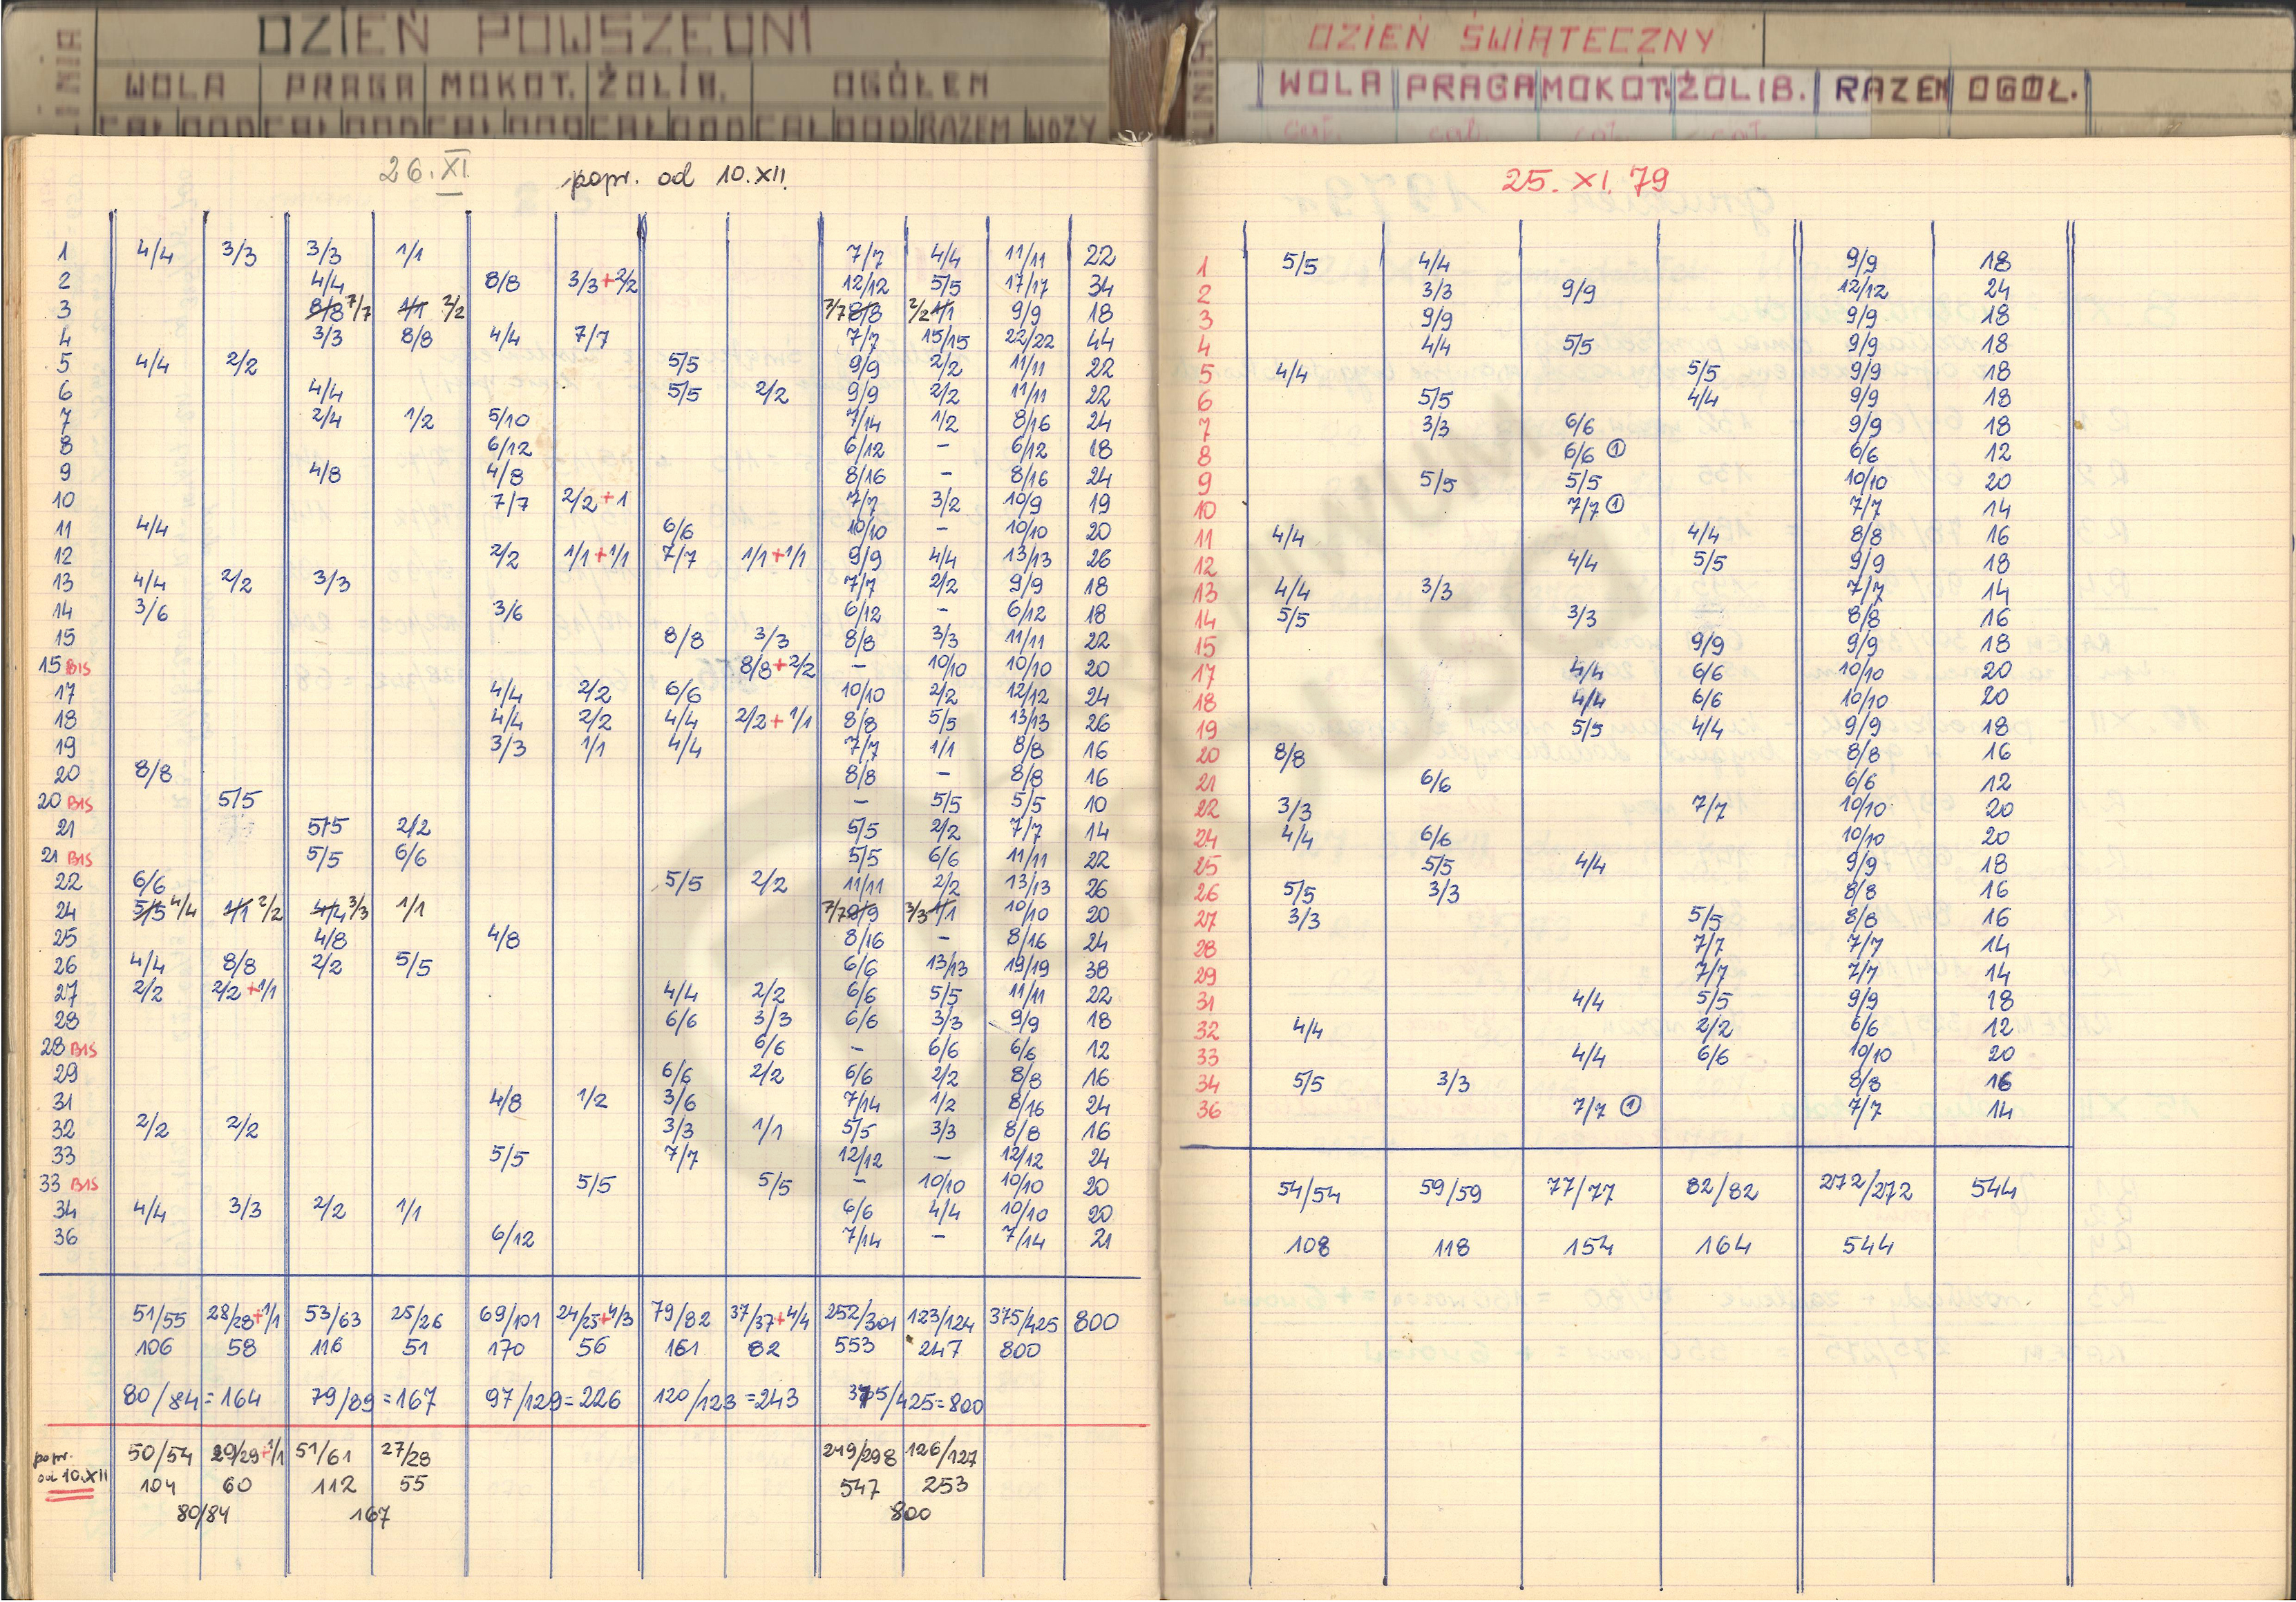 LINIA DZIEŃ POWSZEDNI
WOLA PRAGA MOKOT. ŻOLIB. OGÓŁEM
CAŁ ODD CAŁ ODD CAŁ ODD CAŁ ODD CAŁ ODD RAZEM WOZY
26.XI. popr. od 10.XII.
1 4/4 3/3 3/3 1/1 7/7 4/4 11/11 22
2 4/4 8/8 3/3+2/2 12/12 5/5 17/17 34
3 8/8 7/7 1/1 2/2 7/7 8/8 2/2 1/1 9/9 18
4 3/3 8/8 4/4 7/7 7/7 15/15 22/22 44
5 4/4 2/2 5/5 9/9 2/2 11/11 22
6 4/4 5/5 2/2 9/9 2/2 11/11 22
7 2/4 1/2 5/10 7/14 1/2 8/16 24
8 6/12 6/12 – 6/12 18
9 4/8 4/8 8/16 – 8/16 24
10 7/7 2/2+1 7/7 3/2 10/9 19
11 4/4 6/6 10/10 – 10/10 20
12 2/2 1/1+1/1 7/7 1/1+1/1 9/9 4/4 13/13 26
13 4/4 2/2 3/3 7/7 2/2 9/9 18
14 3/6 3/6 6/12 – 6/12 18
15 8/8 3/3 8/8 3/3 11/11 22
15 BIS 8/8+2/2 – 10/10 10/10 20
17 4/4 2/2 6/6 10/10 2/2 12/12 24
18 4/4 2/2 4/4 2/2+1/1 8/8 5/5 13/13 26
19 3/3 1/1 4/4 7/7 1/1 8/8 16
20 8/8 8/8 – 8/8 16
20 BIS 5/5 – 5/5 5/5 10
21 5/5 2/2 5/5 2/2 7/7 14
21 BIS 5/5 6/6 5/5 6/6 11/11 22
22 6/6 5/5 2/2 11/11 2/2 13/13 26
24 5/5 4/4 1/1 2/2 4/4 3/3 1/1 7/7 9/9 3/3 1/1 10/10 20
25 4/8 4/8 8/16 – 8/16 24
26 4/4 8/8 2/2 5/5 6/6 13/13 19/19 38
27 2/2 2/2+1/1 4/4 2/2 6/6 5/5 11/11 22
28 6/6 3/3 6/6 3/3 9/9 18
28 BIS 6/6 – 6/6 6/6 12
29 6/6 2/2 6/6 2/2 8/8 16
31 4/8 1/2 3/6 7/14 1/2 8/16 24
32 2/2 2/2 3/3 1/1 5/5 3/3 8/8 16
33 5/5 7/7 12/12 – 12/12 24
33 BIS 5/5 5/5 – 10/10 10/10 20
34 4/4 3/3 2/2 1/1 6/6 4/4 10/10 20
36 6/12 7/14 – 7/14 21
51/55 28/28+1/1 53/63 25/26 69/101 24/25+4/3 79/82 37/37+4/4 252/301 123/124 375/425 800
106 58 116 51 170 56 161 82 553 247 800
80/84=164 79/89=167 97/129=226 120/123=243 375/425=800
popr. od 10.XII 50/54 29/29+1/1 51/61 27/28 249/298 126/127
104 60 112 55 547 253
80/84 167 800
LINIA DZIEŃ ŚWIĄTECZNY
WOLA PRAGA MOKOT. ŻOLIB. RAZEM OGÓŁ.
cał. cał. cał. cał.
25. XI. 79
1 5/5 4/4 9/9 18
2 3/3 9/9 12/12 24
3 9/9 9/9 18
4 4/4 5/5 9/9 18
5 4/4 5/5 9/9 18
6 5/5 4/4 9/9 18
7 3/3 6/6 9/9 18
8 6/6 ① 6/6 12
9 5/5 5/5 10/10 20
10 7/7 ① 7/7 14
11 4/4 4/4 8/8 16
12 4/4 5/5 9/9 18
13 4/4 3/3 7/7 14
14 5/5 3/3 8/8 16
15 9/9 9/9 18
17 4/4 6/6 10/10 20
18 4/4 6/6 10/10 20
19 5/5 4/4 9/9 18
20 8/8 8/8 16
21 6/6 6/6 12
22 3/3 7/7 10/10 20
24 4/4 6/6 10/10 20
25 5/5 4/4 9/9 18
26 5/5 3/3 8/8 16
27 3/3 5/5 8/8 16
28 7/7 7/7 14
29 7/7 7/7 14
31 4/4 5/5 9/9 18
32 4/4 2/2 6/6 12
33 4/4 6/6 10/10 20
34 5/5 3/3 8/8 16
36 7/7 ① 7/7 14
54/54 59/59 77/77 82/82 272/272 544
108 118 154 164 544